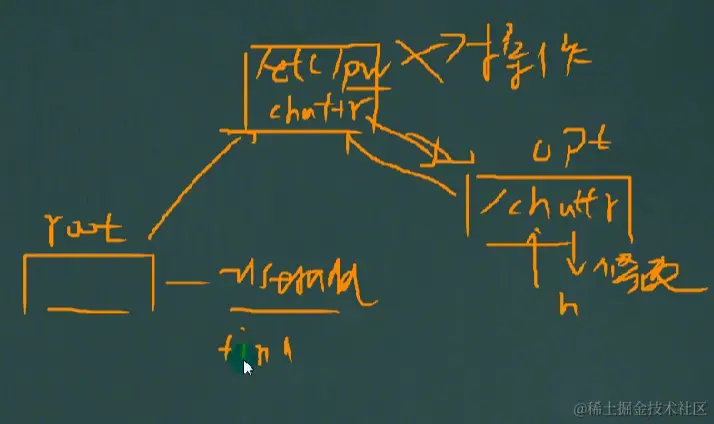 /etc/pw
chattr
opt
/chattr
root
useradd
修改
h
@稀土掘金技术社区